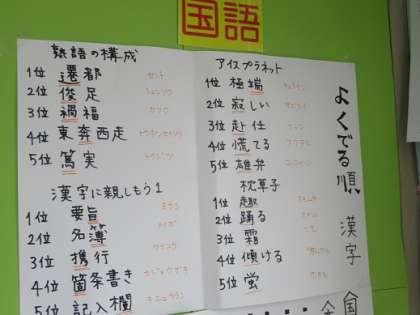 国語
よくでる順 漢字
熟語の構成
1位 遷都 セント
2位 俊足 シュンソク
3位 禍福 カフク
4位 東奔西走 トウホンセイソウ
5位 篤実 トクジツ
漢字に親しもう1
1位 要旨 ヨウシ
2位 名簿 メイボ
3位 携行 ケイコウ
4位 箇条書き カジョウガき
5位 記入欄 キニュウラン
アイスプラネット
1位 極端 キョクタン
2位 寂しい サビしい
3位 赴任 フニン
4位 慌てる アワてる
5位 雄弁 ユウベン
枕草子
1位 趣 オモムキ
2位 踊る
3位 霜
4位 傾ける
5位 蛍
国